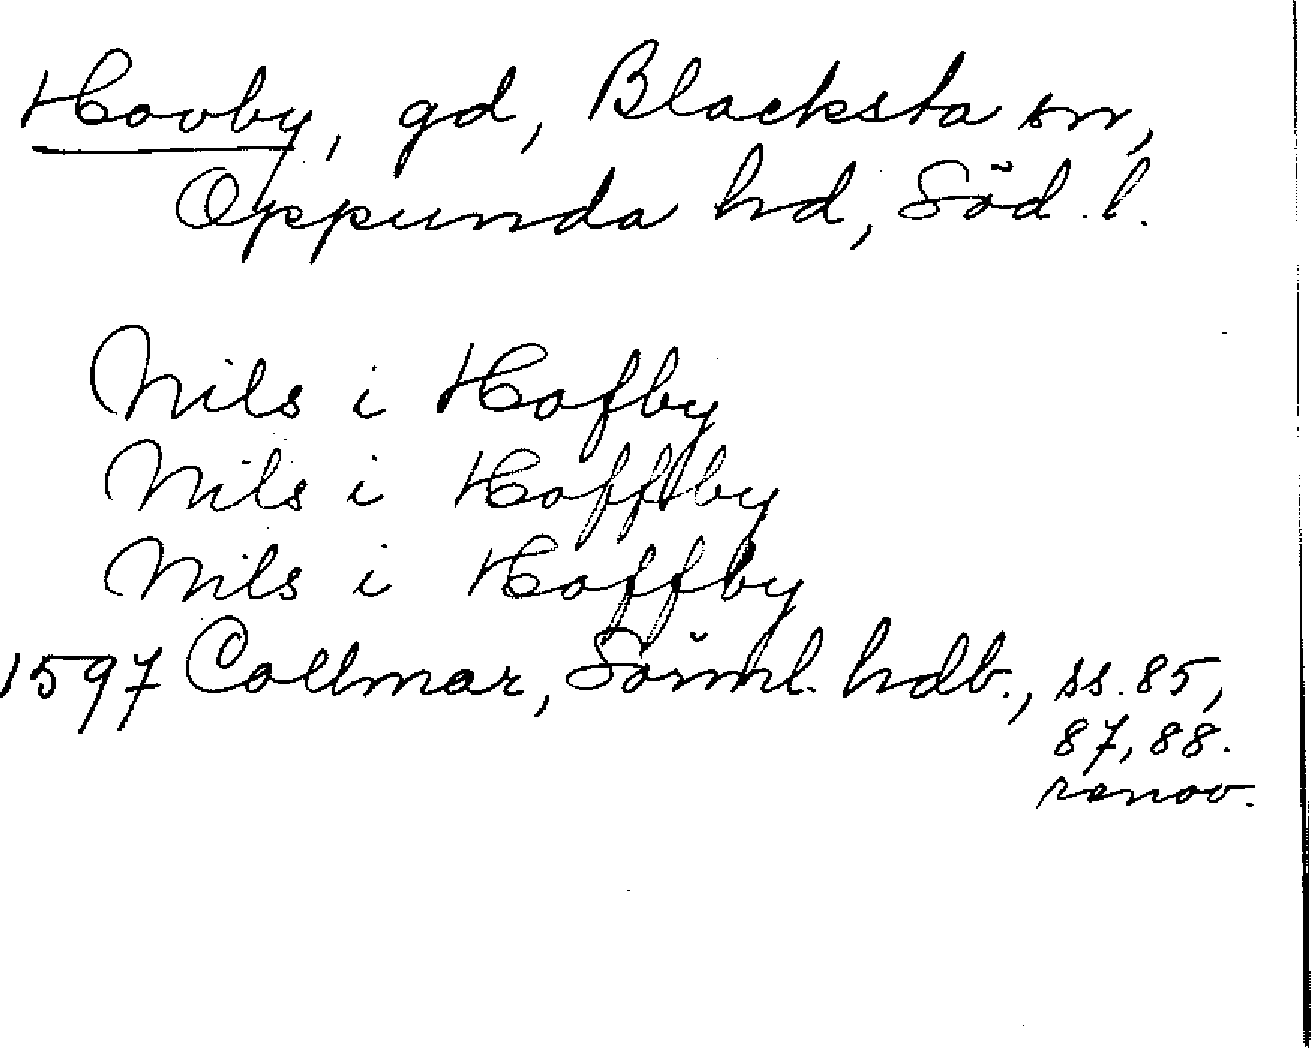 Hovby, gd, Blacksta sn,
Oppunda hd, Söd. l.
Nils i Hofby
Nils i Hoffby
Nils i Hoffby
1597 Collmar, Sörml. hdb., ss. 85,
87, 88.
renov.